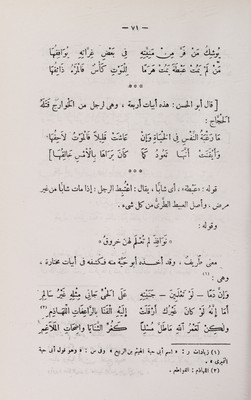 — ٧١ —
يُوشِكُ مَنْ فَرَّ مِنْ مَنِيَّتِهِ فى بَعْضِ غِرَّاتِهِ يُوَافِقُهَا
مَنْ لَمْ يَمُتْ عَبْطَةً يَمُتْ هَرَمًا لِلْمَوْتِ كَأْسٌ فَالْمَرْءُ ذَائِقُهَا
***
[ قال أبو الحسن : هذه أبيات أربعة ، وهى لرجل من الخوارج قَتَلَهُ
الحجّاج :
مَا رَغْبَةُ النَّفْسِ فى الْحَيَاةِ وَإِنْ عَاشَتْ قَلِيلاً فَالْمَوْتُ لَاحِقُهَا
وَأَيْقَنَتْ أَنَّهَا تَعُودُ كَمَا كَانَ بَرَاهَا بِالْأَمْسِ خَالِقُهَا ]
***
قوله : « عَبْطَة » ، أى شابًا ، يقال : اعْتُبِطَ الرجل : إذا مات شابًا من غير
مرض ، وأصل العبيط الطَّرِىُّ من كل شىء .
وقوله :
* نَوَافِذَ لم تُعْلَمْ لَهُنَّ خُرُوقُ *
معنى طريف ، وقد أخذه أبو حَيَّة منه فكشفه فى أبيات مختارة ،
وهى (١) :
وَإِنَّ دَمًا – لَوْ تَعْلَمِينَ – جَنَيْتِهِ عَلَى الْحَىِّ جَانِى مِثْلِهِ غَيْرُ سَالِمِ
أَمَا إِنَّهُ لَوْ كَانَ غَيْرُكِ أَرْقَلَتْ إِلَيْهِ الْقَنَا بِالرَّاعِفَاتِ اللَّهَاذِمِ (٢)
وَلٰكِنْ لَعَمْرُ اللهِ مَاطَلَّ مُسْلِمًا كَغُرِّ الثَّنَايَا وَاضِحَاتِ الْمَلَاغِمِ
(١) زيادات ر : « اسم أبى حية الهيثم بن الربيع » وفى س : « وهو قول أبى حية
النميرى » .
(٢) اللهاذم : القواطع .